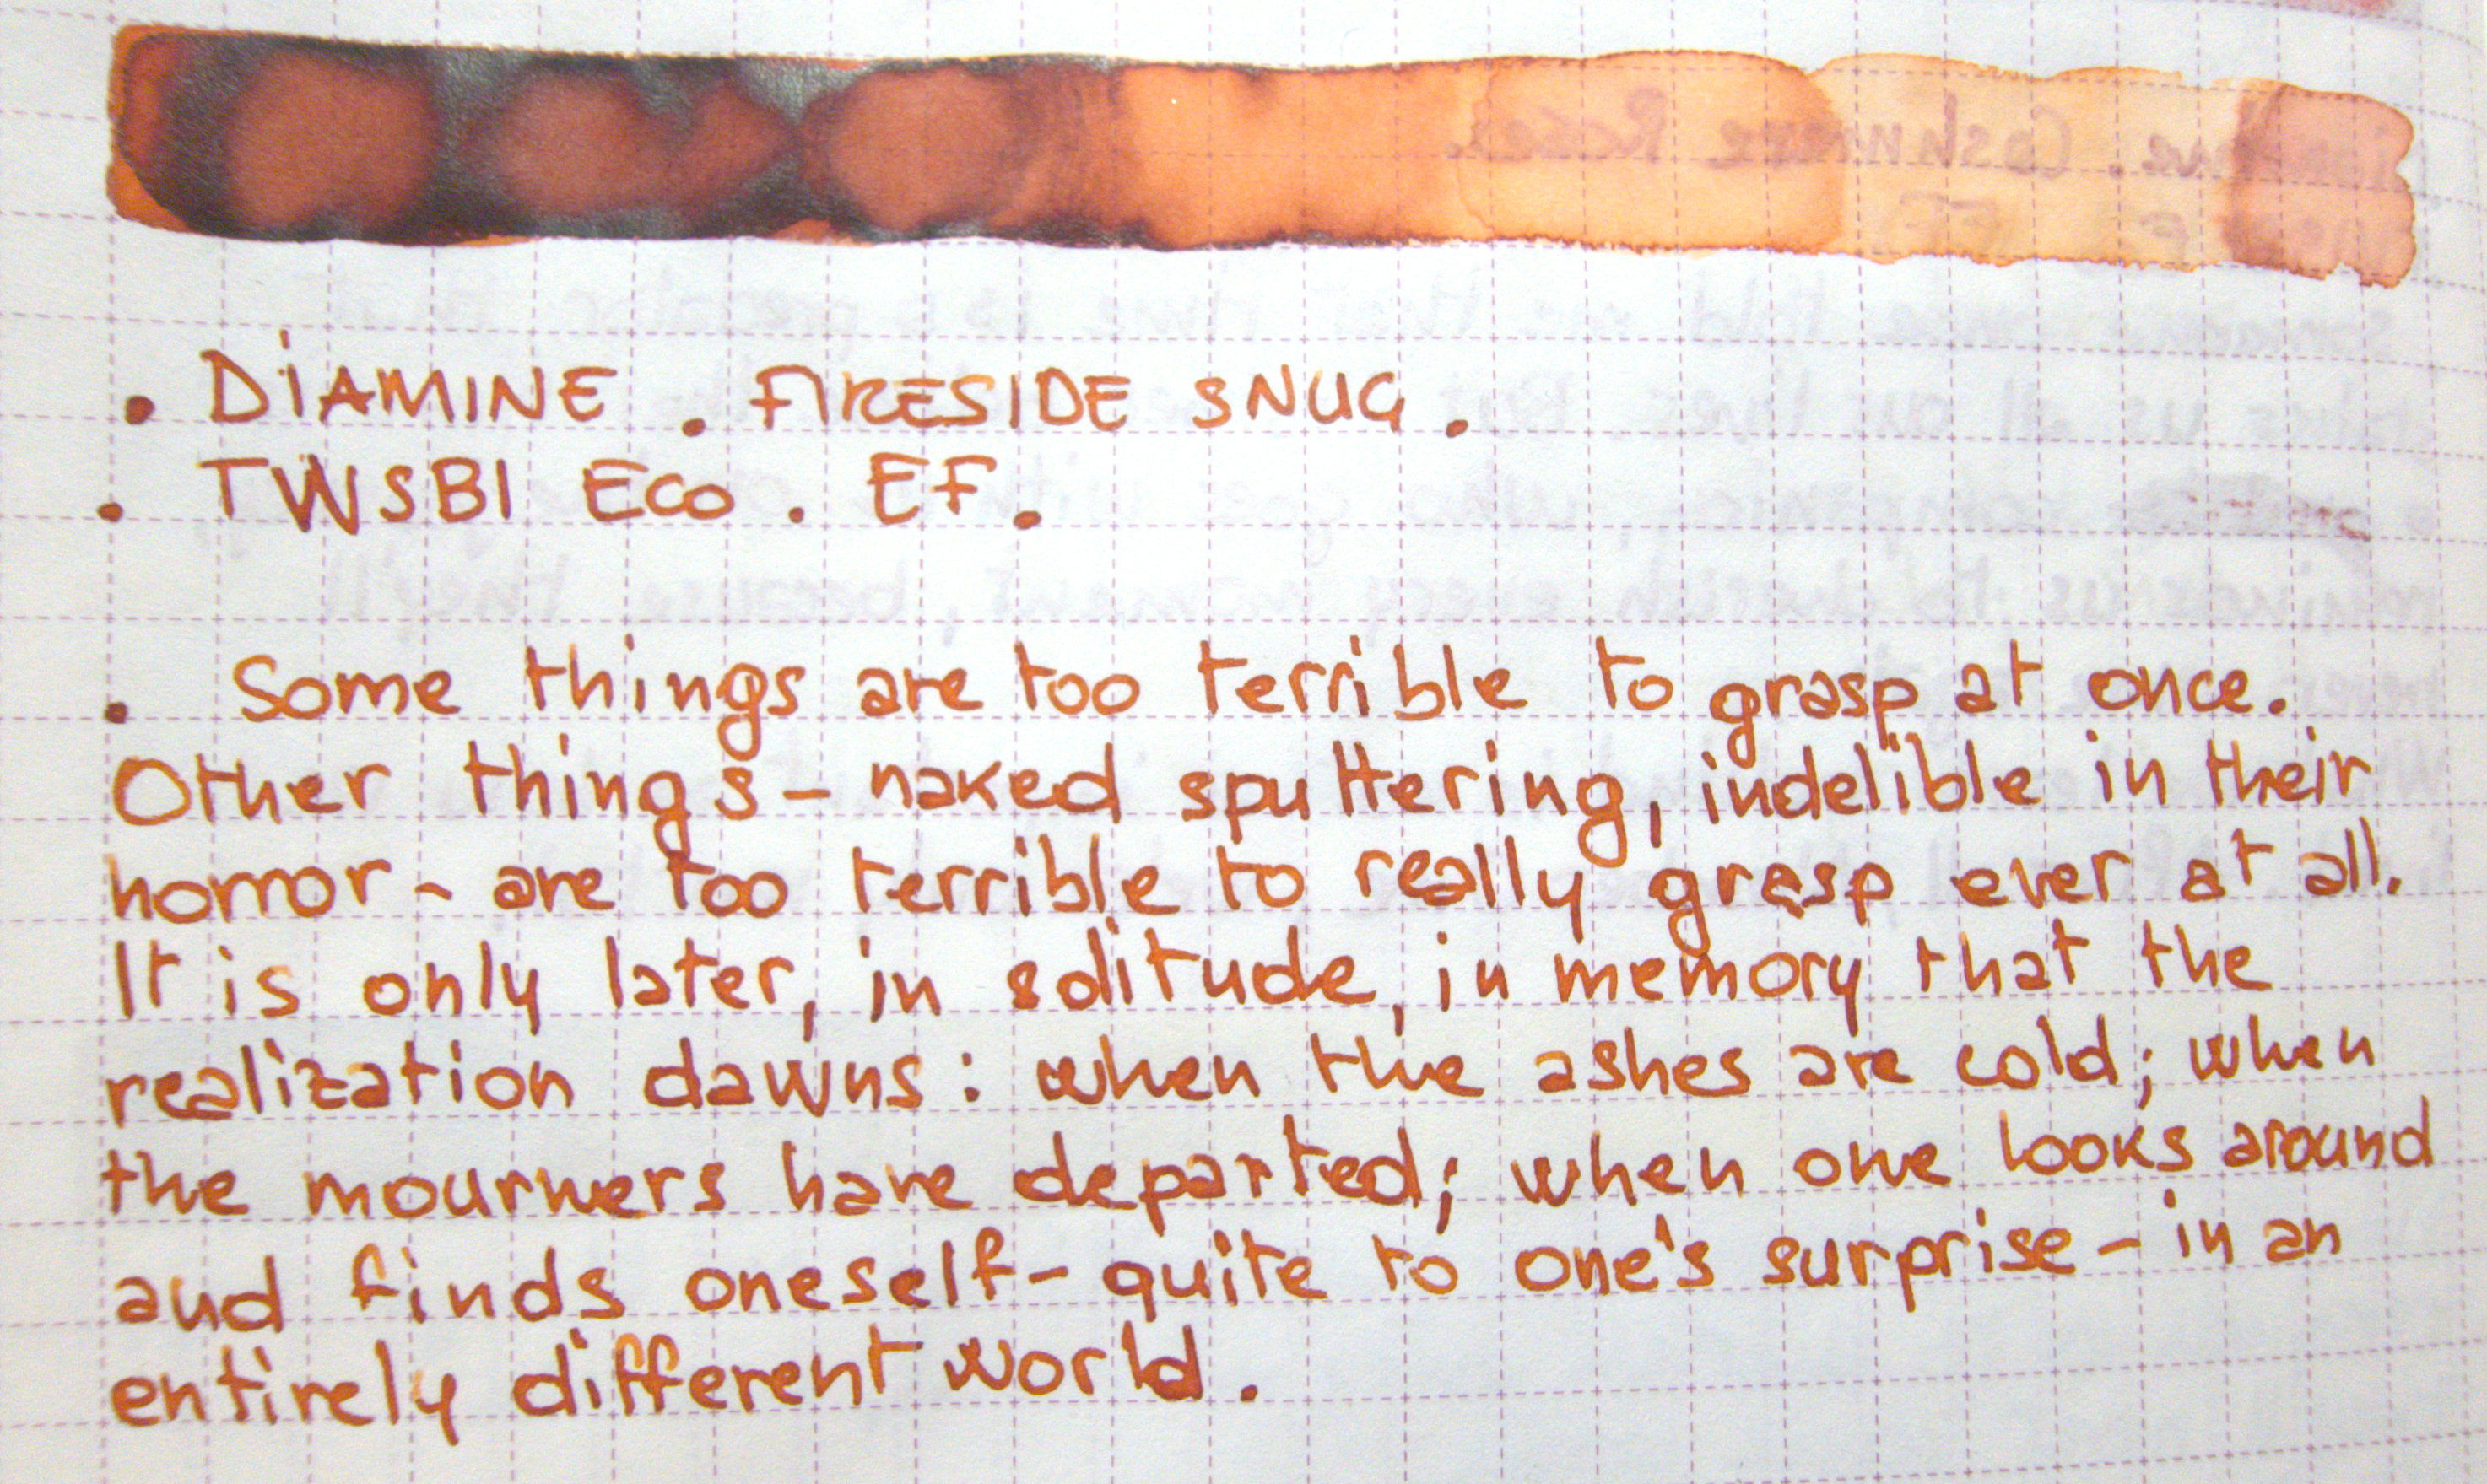 . DiAMINE . FIRESIDE SNUG .
. TWSBI ECO . EF .
. Some things are too terrible to grasp at once.
Other things - naked sputtering, indelible in their
horror - are too terrible to really grasp ever at all.
It is only later, in solitude, in memory that the
realization dawns: when the ashes are cold; when
the mourners have departed; when one looks around
and finds oneself - quite to one's surprise - in an
entirely different world.